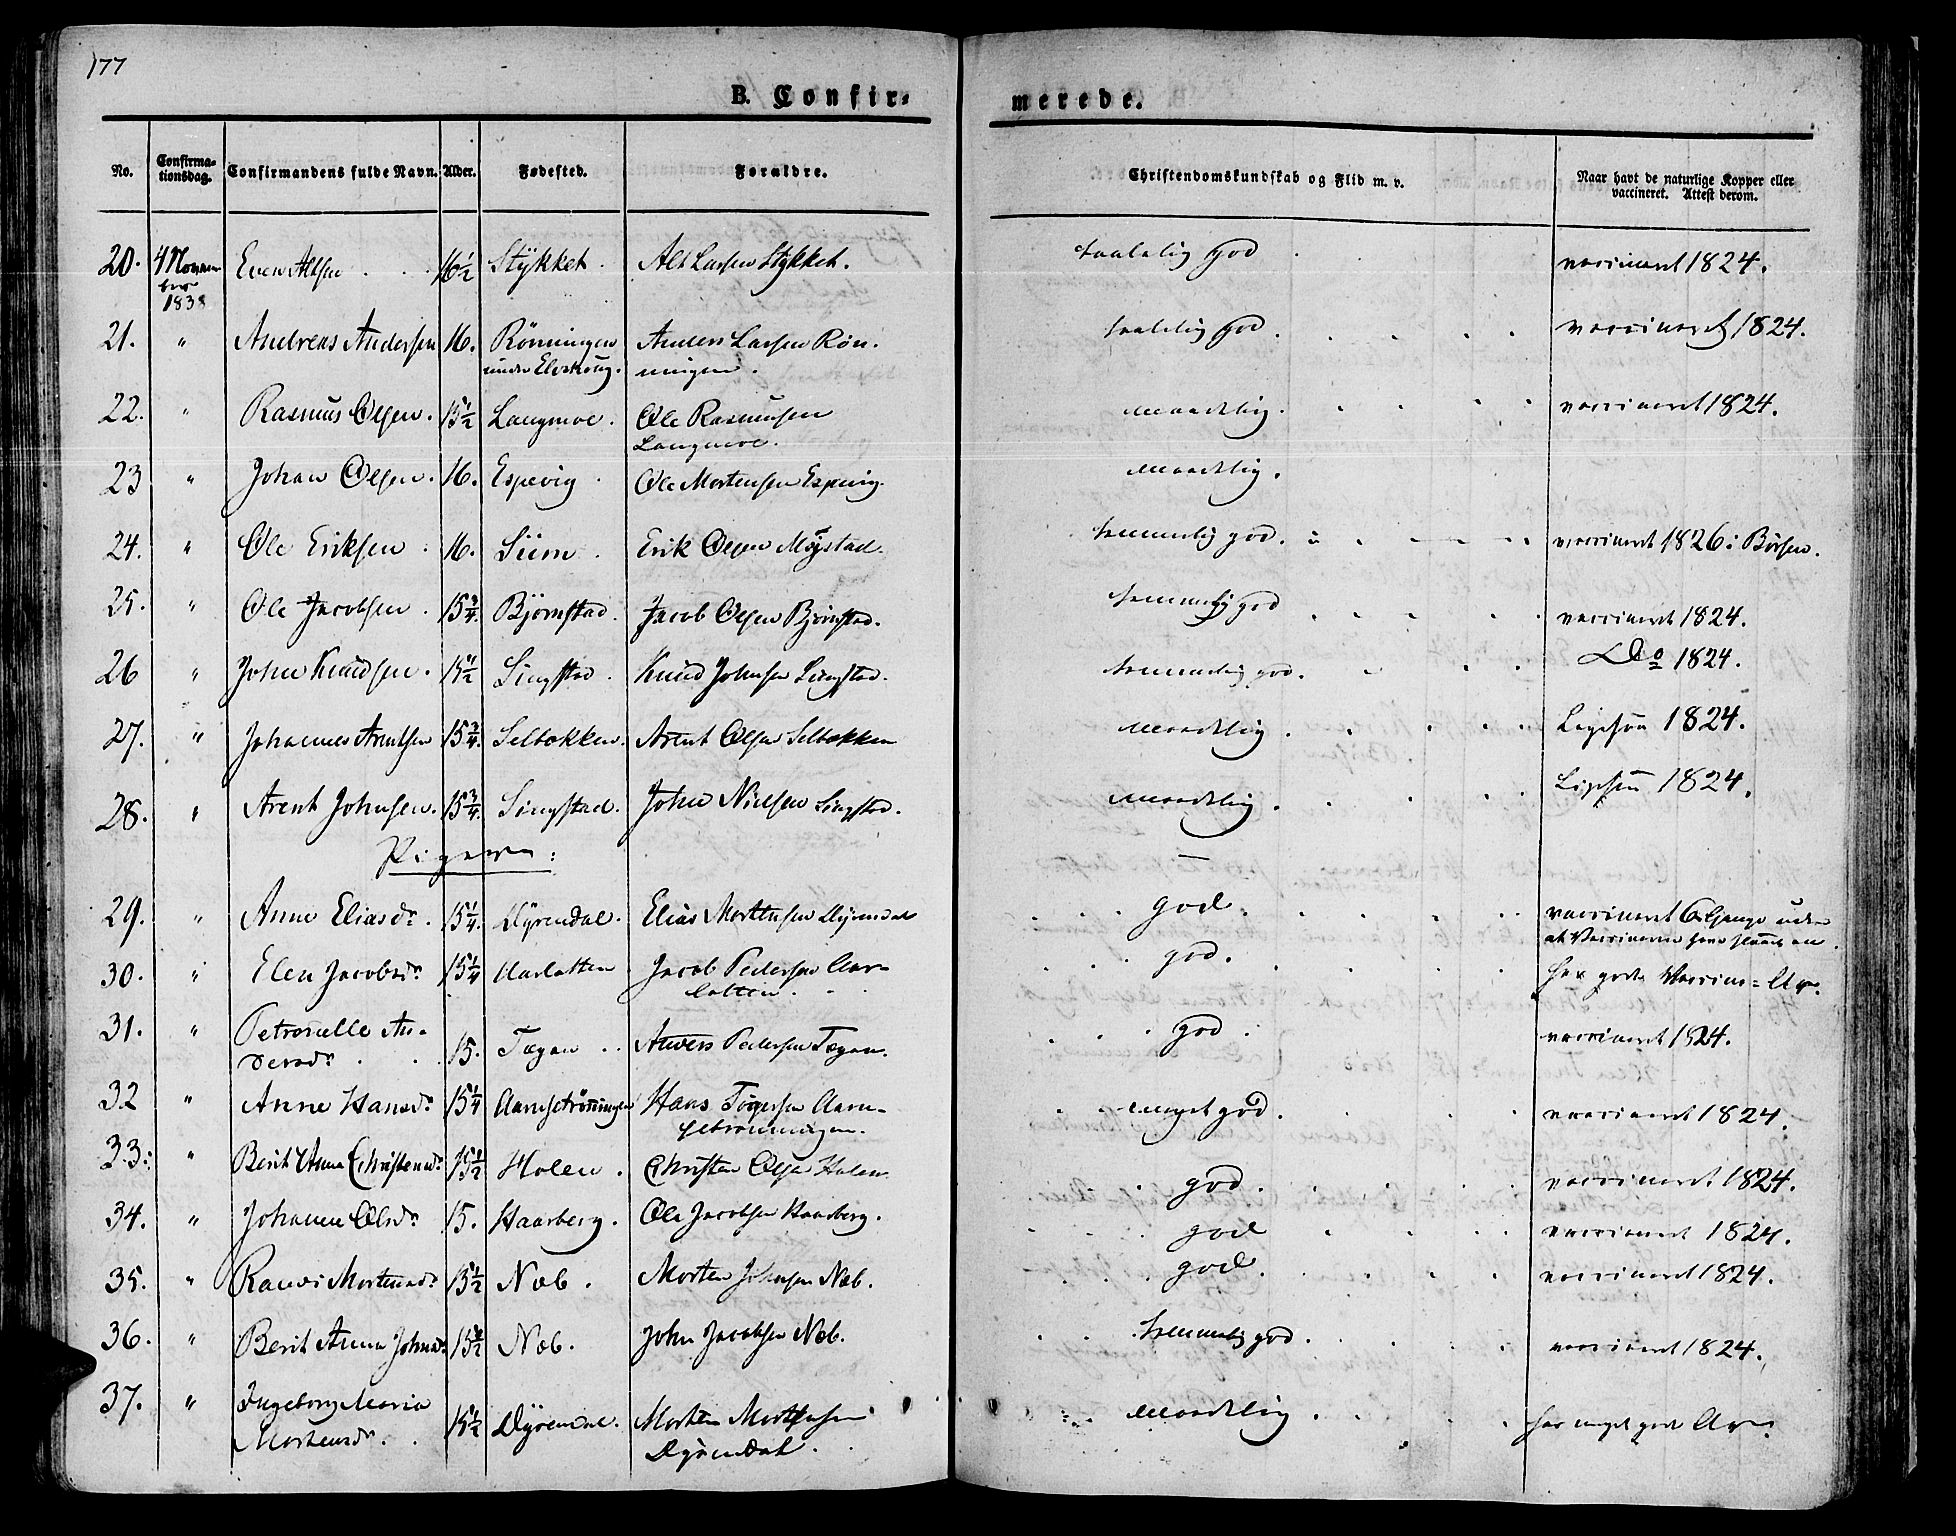 177
B. Confir-
merede.
No. Confirma-tionsdag. Confirmandens fulde Navn. Alder. Fødested. Forældre. Christendomskundskab og Flid m. v. Naar havt de naturlige Kopper eller vaccineret. Attest derom.
20. 4 Novem-ber 1838 Even Altsen 16½ Stykket. Alt Larsen Stykket. taalelig god vaccineret 1824.
21. " Andreas Andersen 16. Rönningen under Anders Larsen Rön-
ningen. taalelig god. vaccineret 1824.
22. " Rasmus Olsen. 15½ Langmoe. Ole Rasmusen
Langmoe. maadelig. vaccineret 1824.
23 " Johan Olsen. 16. Espevig Ole Mortensen Espevig. maadelig.
24. " Ole Eriksen 16. Siem Erik Olsen Möystad. temmelig god. vaccineret 1826 i Börsen.
25. " Ole Jacobsen 15¾. Björnstad. Jacob Olsen Björnstad. temmelig god vaccineret 1824.
26 " John Knudsen. 15½ Singstad Knud Johnsen Singstad. temmelig god. Do 1824.
27. " Johannes Arntsen 15¾. Selbekken. Arent Olsen Selbekken maadelig Ligesaa 1824.
28. " Arent Johnsen. 15¾. Singstad. John Nielsen Singstad. maadelig. Ligesaa 1824.
Pigerne:
29. " Anne Eliasdr. 15¼. Dyrendal. Elias Mortensen Dyrendal god. vaccineret 6 Gange uden
at Vaccinerne have slaaet an.
30. " Elen Jacobsdr. 15¼ Aarlotten Jacob Pedersen Aar-
lotten. god. har gode Vaccine-Ar.
31. " Petronelle An-
dersdr. 15. Tøgan Anders Pedersen Tøgan. god vaccineret 1824.
32 " Anne Hansdr. 15¼ Aarnsetrönningen Hans Aarn-
setrönningen. meget god. vaccineret 1824.
33. " Berit Anna Christensdr. 15½ Holen. Christen Olsen Holen. god. vaccineret 1824.
34. " Johanna Olsdr. 15. Haarberg. Ole Jacobsen Haarberg. god vaccineret 1824.
35. " Randi Mortensdr. 15½ Næb. Morten Johnsen Næb. god. vaccineret 1824.
36. " Berit Anna Johnsdr. 15½ Næb. John Jacobsen Næb. temmelig god. vaccineret 1824.
37. " Ingeborg Maria
Mortensdr. 15½ Dyrendal. Morten Mortensen
Dyrendal. maadelig har meget gode Ar.